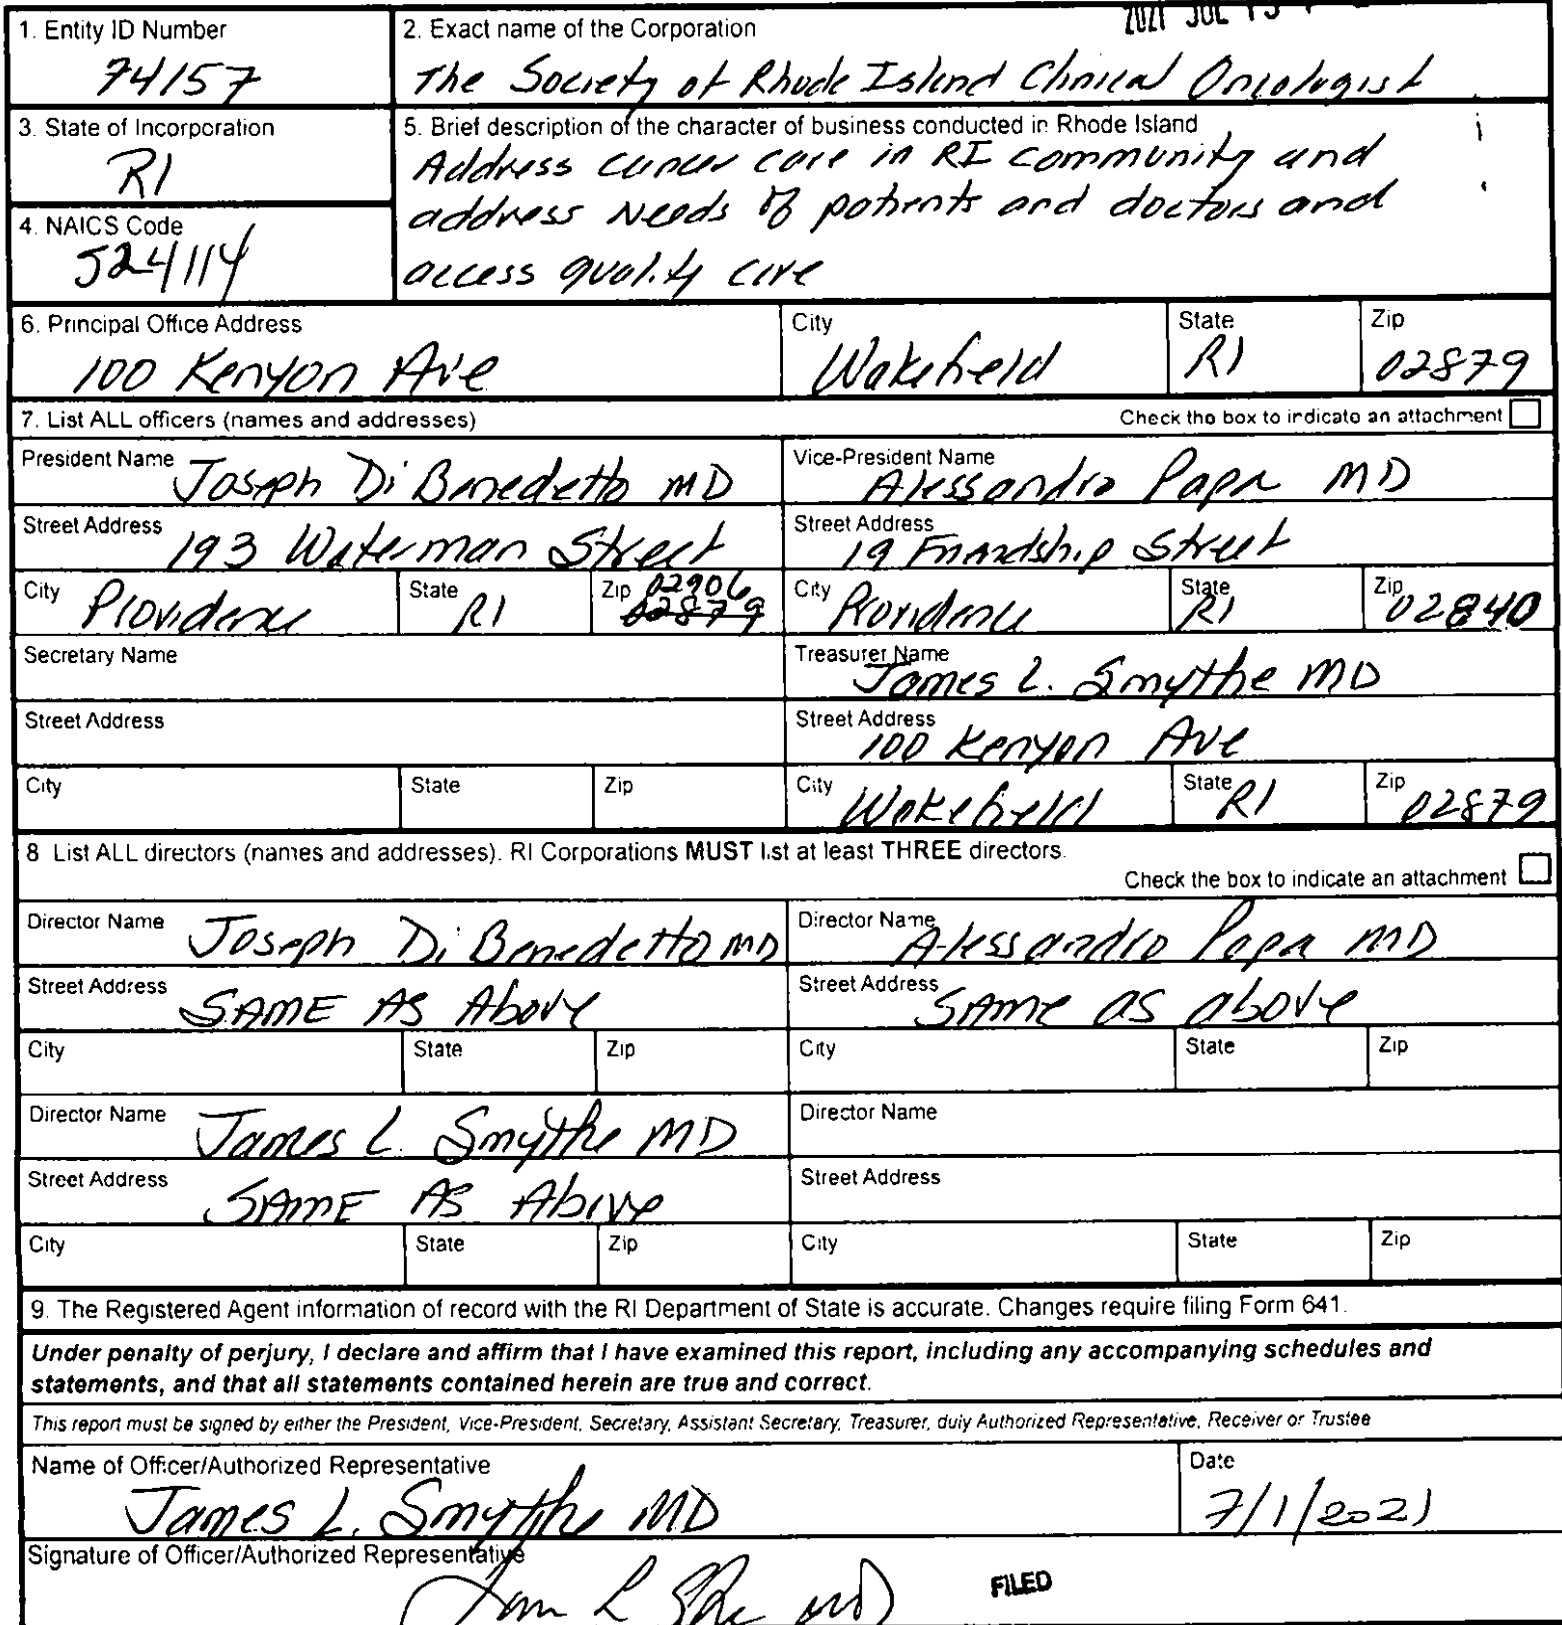 2021 JUL 13
1. Entity ID Number
74157
2. Exact name of the Corporation
The Society of Rhode Island Clinical Oncologist
3. State of Incorporation
RI
5. Brief description of the character of business conducted in Rhode Island
Address cancer care in RI community and
address needs of patients and doctors and
access quality care
4. NAICS Code
524114
6. Principal Office Address
100 Kenyon Ave
City
Wakefield
State
RI
Zip
02879
7. List ALL officers (names and addresses)
Check the box to indicate an attachment
President Name Joseph Di Benedetto MD
Vice-President Name Alessandro Papa MD
Street Address 193 Waterman Street
Street Address 19 Friendship Street
City Providence State RI Zip 02906 02879
City Providence State RI Zip 02840
Secretary Name
Treasurer Name James L. Smythe MD
Street Address
Street Address 100 Kenyon Ave
City State Zip
City Wakefield State RI Zip 02879
8 List ALL directors (names and addresses). RI Corporations MUST list at least THREE directors.
Check the box to indicate an attachment
Director Name Joseph Di Benedetto MD
Director Name Alessandro Papa MD
Street Address SAME AS Above
Street Address SAme as above
City State Zip
City State Zip
Director Name James L. Smythe MD
Director Name
Street Address SAME AS Above
Street Address
City State Zip
City State Zip
9. The Registered Agent information of record with the RI Department of State is accurate. Changes require filing Form 641.
Under penalty of perjury, I declare and affirm that I have examined this report, including any accompanying schedules and
statements, and that all statements contained herein are true and correct.
This report must be signed by either the President, Vice-President, Secretary, Assistant Secretary, Treasurer, duly Authorized Representative, Receiver or Trustee
Name of Officer/Authorized Representative
James L. Smythe MD
Date
7/1/2021
Signature of Officer/Authorized Representative
FILED